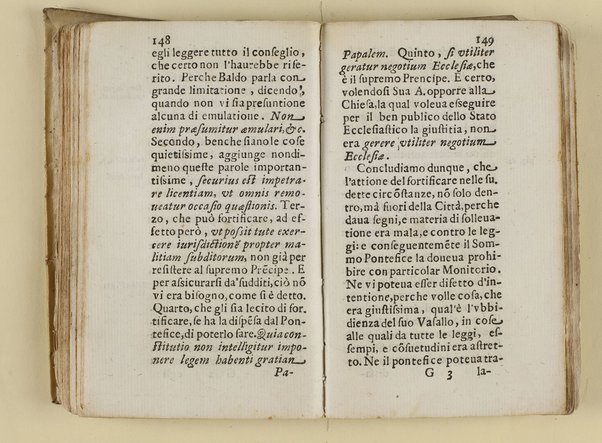 148
egli leggere tutto il conseglio,
che certo non l'haurebbe rife-
rito. Perche Baldo parla con
grande limitatione, dicendo,
quando non vi sia presuntione
alcuna di emulatione. Non
enim præsumitur æmulari, &c.
Secondo, benche siano le cose
quietissime, aggiunge nondi-
meno queste parole importan-
tissime, securius est impetra-
re licentiam, vt omnis remo-
ueatur occasio quæstionis. Ter-
zo, che può fortificare, ad ef-
fetto però, vt possit tute exer-
cere iurisdictionē propter ma-
litiam subditorum, non già per
resistere al supremo Prēcipe. E
per assicurarsi da'sudditi, ciò nō
vi era bisogno, come si è detto.
Quarto, che gli sia lecito di for-
tificare, se ha la dispēsa dal Pon-
tefice, di poterlo fare. Quia con-
stitutio non intelligitur impo-
nere legem habenti gratian
Pa-
149
Papalem. Quinto, si vtiliter
geratur negotium Ecclesiæ, che
è il supremo Prencipe. E certo,
volendosi Sua A. opporre alla
Chiesa, la qual voleua esseguire
per il ben publico dello Stato
Ecclesiastico la giustitia, non
era gerere vtiliter negotium
Ecclesiæ.
Concludiamo dunque, che
l'attione del fortificare nelle su-
dette circōstanze, nō solo den-
tro, mà fuori della Città, perche
daua segni, e materia di solleua-
tione era mala, e contro le leg-
gi: e conseguentemēte il Som-
mo Pontefice la doueua prohi-
bire con particolar Monitorio.
Ne vi poteua esser difetto d'in-
tentione, perche volle cosa, che
era giustissima, qual'è l'vbbi-
dienza del suo Vasallo, in cose
alle quali da tutte le leggi, es-
sempi, e cōsuetudini era astret-
to. Ne il pontefice poteua tra-
G 3 la-